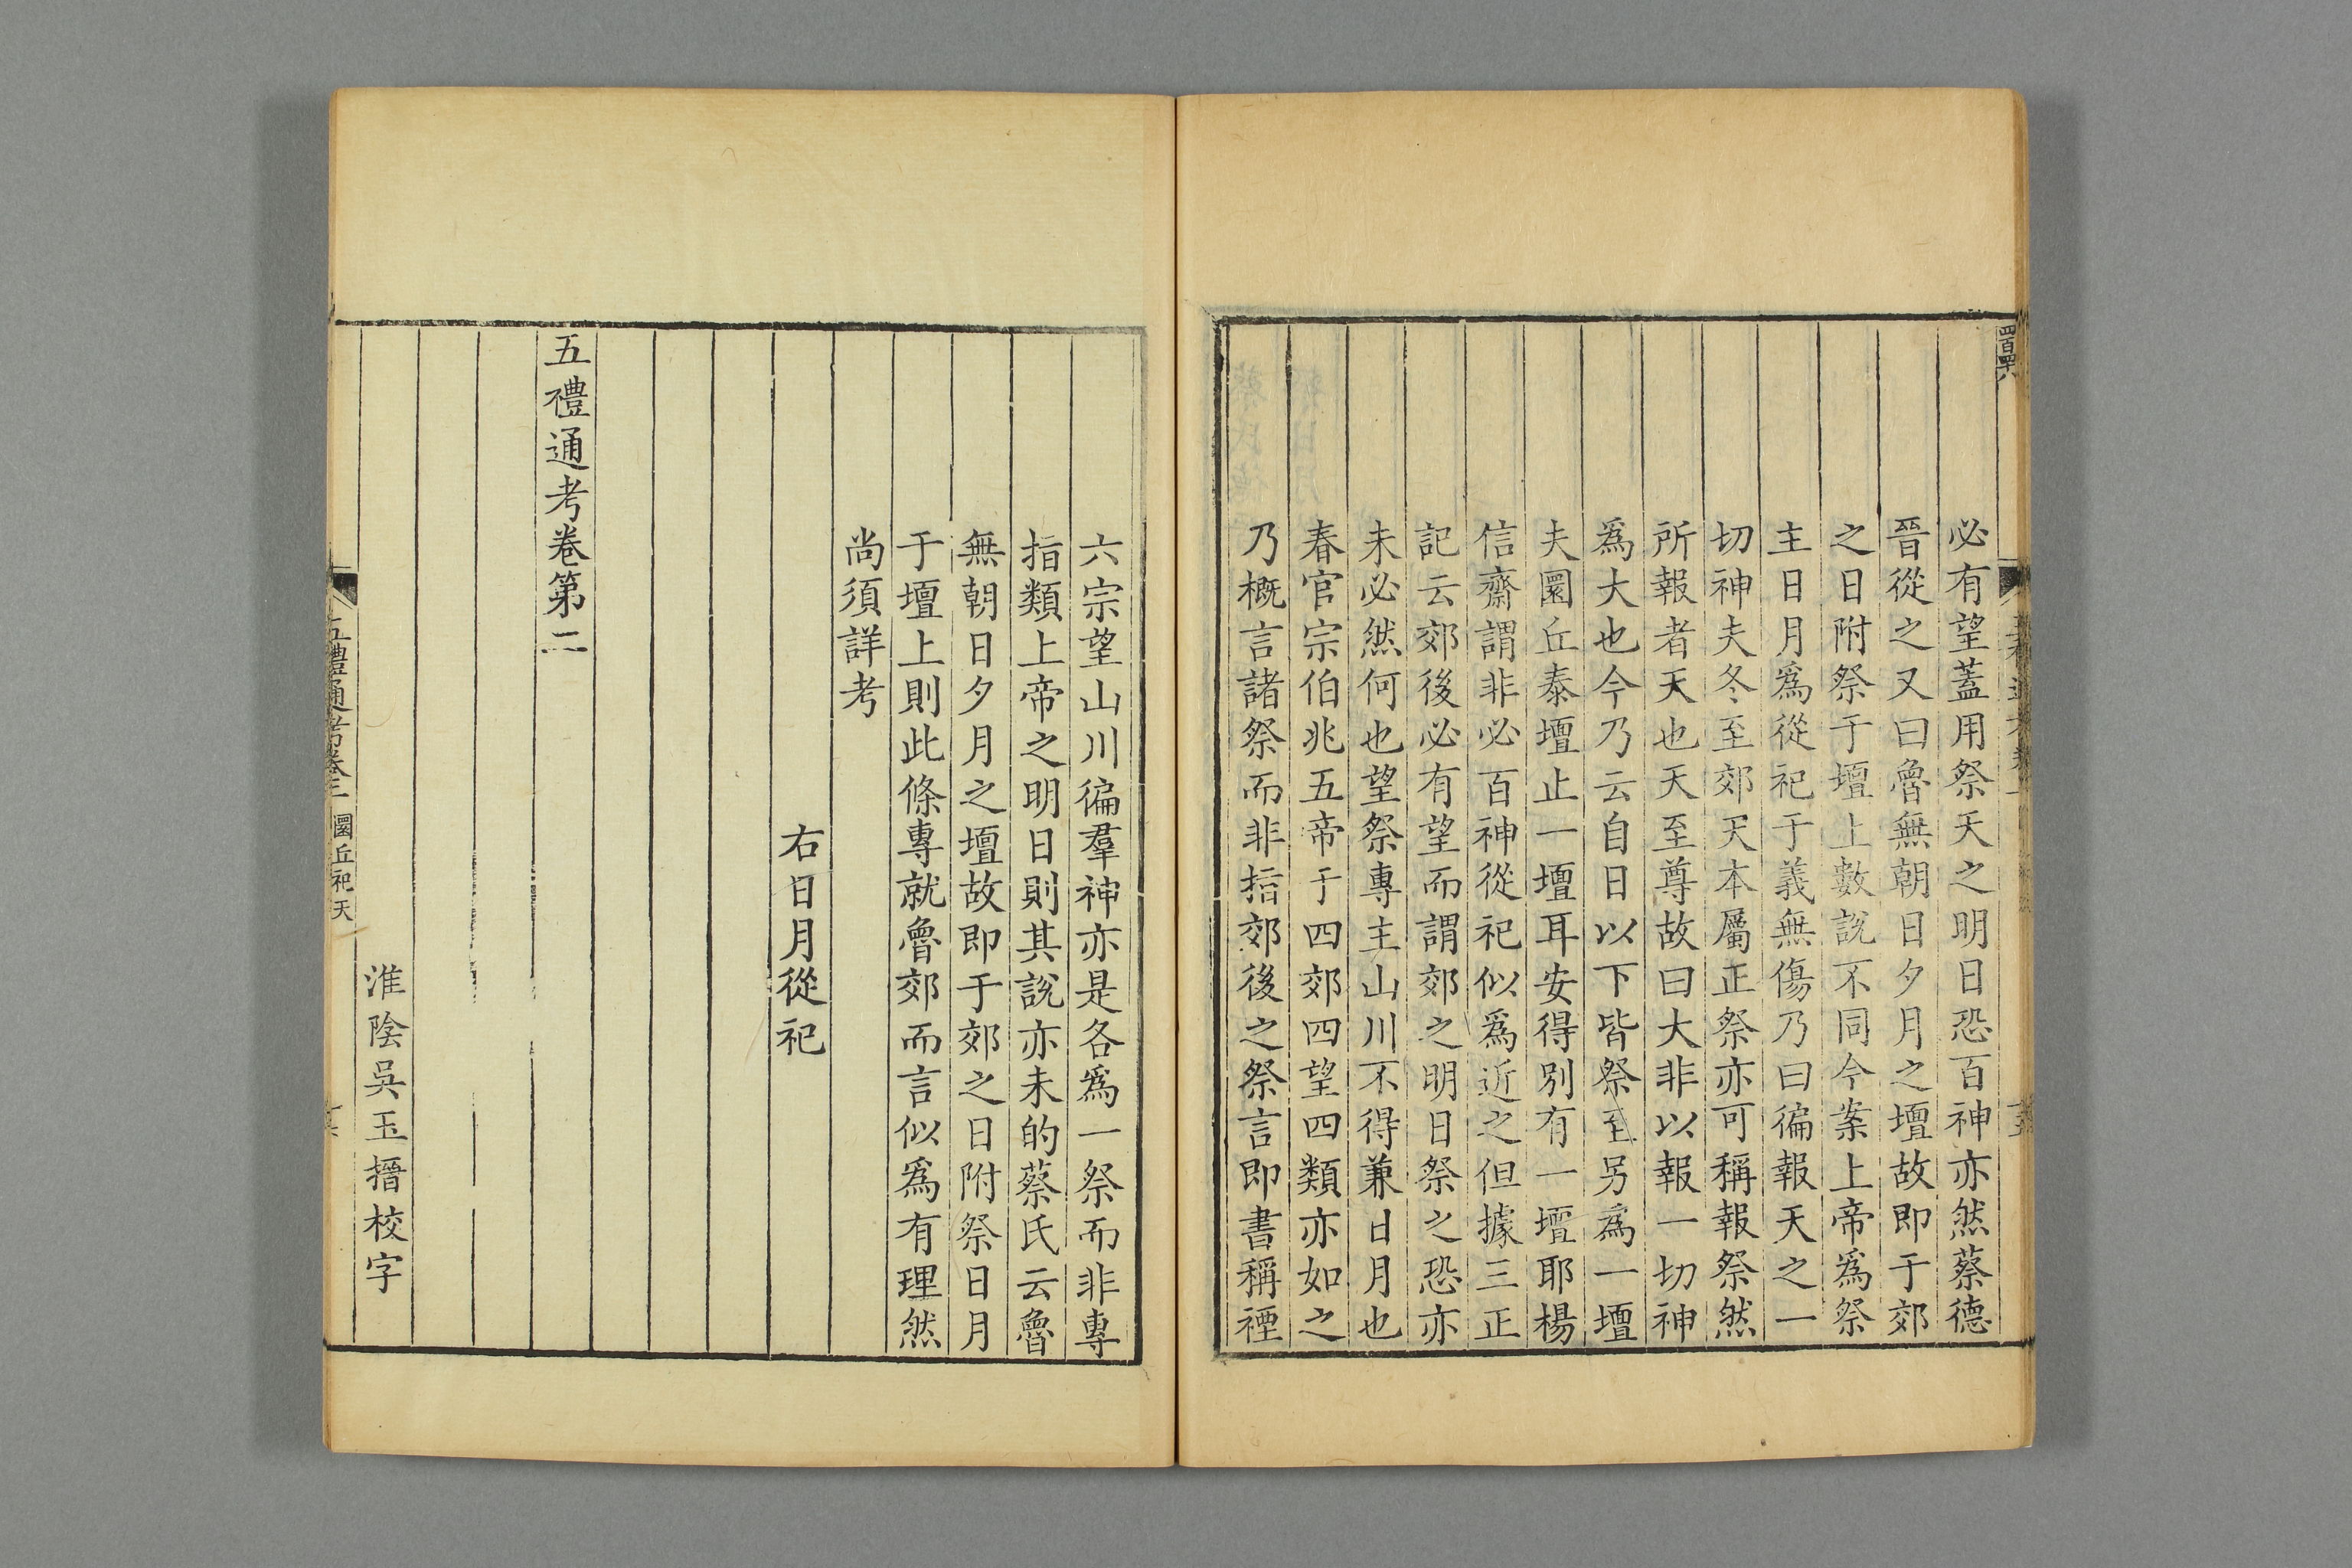 必有望蓋用祭天之明日恐百神亦然蔡德
晉從之又曰魯無朝日夕月之壇故即于郊
之日附祭于壇上數說不同今案上帝爲祭
主日月爲從祀于義無傷乃曰徧報天之一
切神夫冬至郊天本屬正祭亦可稱報祭然
所報者天也天至尊故曰大非以報一切神
爲大也今乃云自日以下皆祭至另爲一壇
夫圜丘泰壇止一壇耳安得別有一壇耶楊
信齋謂非必百神從祀似爲近之但據三正
記云郊後必有望而謂郊之明日祭之恐亦
未必然何也望祭專主山川不得兼日月也
春官宗伯兆五帝于四郊四望四類亦如之
乃概言諸祭而非指郊後之祭言即書稱禋
六宗望山川徧羣神亦是各爲一祭而非專
指類上帝之明日則其說亦未的蔡氏云魯
無朝日夕月之壇故即于郊之日附祭日月
于壇上則此條專就魯郊而言似爲有理然
尚須詳考
右日月從祀
五禮通考卷第二
淮陰吳玉搢校字
五禮通考卷二 圜丘祀天